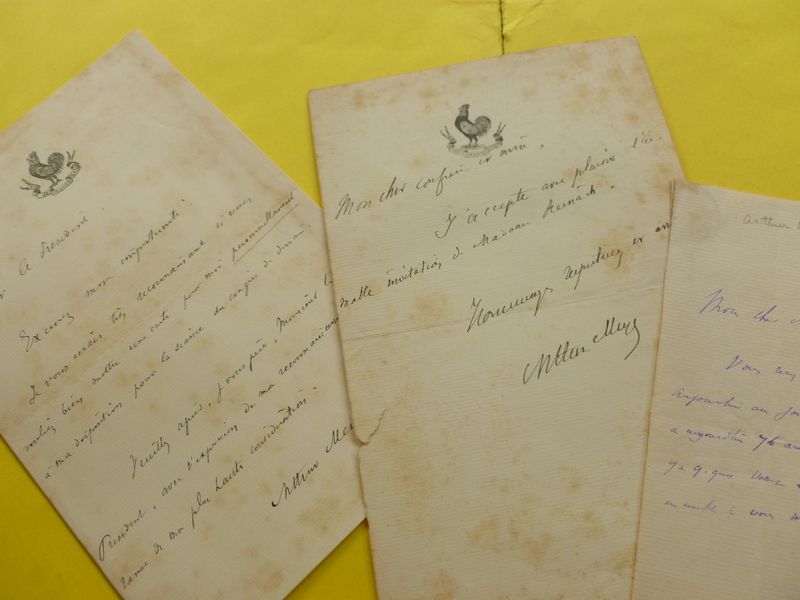 A Président
Excusez mon importunité.
Je vous serais très reconnaissant si vous
vouliez bien mettre une carte pour moi personnellement
à ma disposition pour la séance du congrès de demain.
Veuillez agréer, je vous prie, Monsieur le
Président, avec l'expression de ma reconnaissance
de ma plus haute considération.
Arthur Me
Mon cher confrère et ami,
J'accepte avec plaisir l'ai-
mable invitation de Madame Reinach.
Hommages respectueux et am
Arthur Meyer
Arthur
Mon cher
Vous
aujourd'hui au
a aujourd'hui 76 an
vous